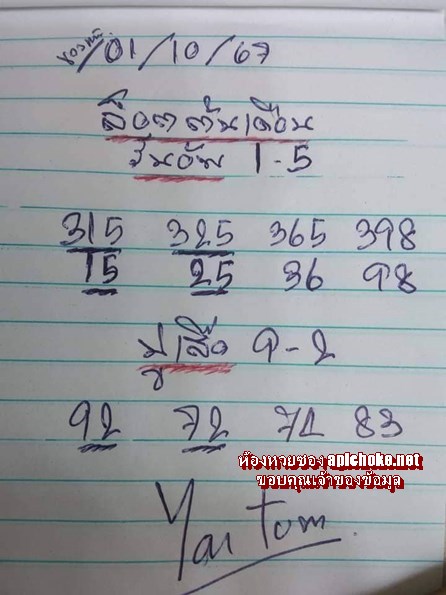 /01/10/67
ล็อคต้นเดือน
วันอัน 1-5
315 325 365 398
15 25 36 98
9-2
92 72 74 83
ห้องหวยซอง apichoke.net
ขอบคุณเจ้าของข้อมูล
Yai Tom